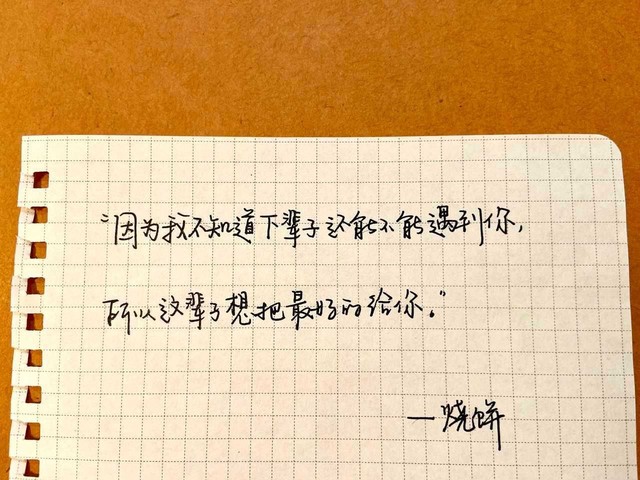 “因为我不知道下辈子还能不能遇到你，
所以这辈子想把最好的给你。”
—烧饼